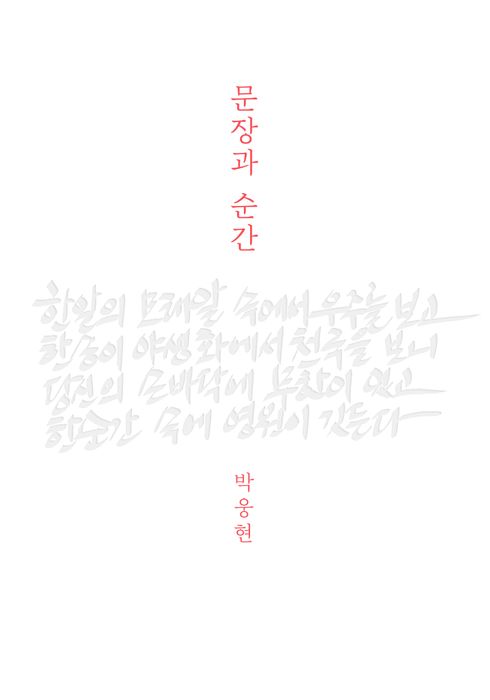 문장과 순간
한 알의 모래알 속에서 우주를 보고
한 송이 야생화에서 천국을 보니
당신의 손바닥에 무한이 있고
한 순간 속에 영원이 깃든다
박웅현